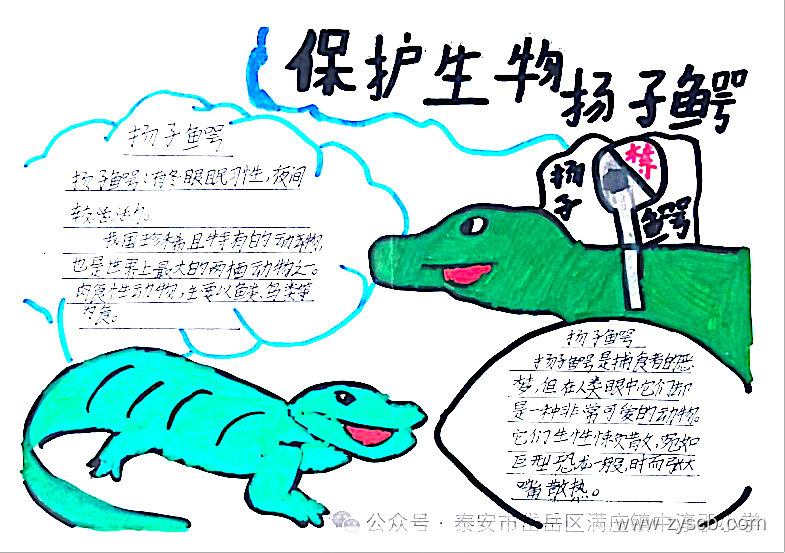 保护生物
扬子鳄
禁
扬子
鳄
扬子鳄
扬子鳄:有冬眼眠习性,夜间
较活活力。
我国珍稀且特有的动物,
也是世界上最大的两栖动物之。
肉食性动物,主要以鱼类、鸟类等
为食。
扬子鳄
扬子鳄是捕食者的恶
梦,但在人类眼中它们却
是一种非常可爱的动物。
它们生性懒散,宛如
巨型恐龙一般,时而张大
嘴散热。
公众号·泰安市岱岳区满庄镇中
www.zyscb.com